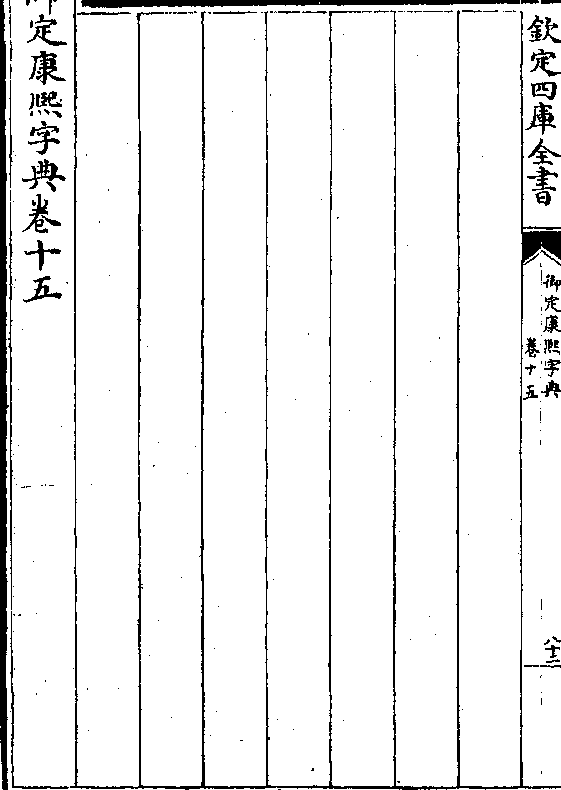 欽定四庫全書
御定康熙字典
卷十五
八十二
御定康熙字典卷十五